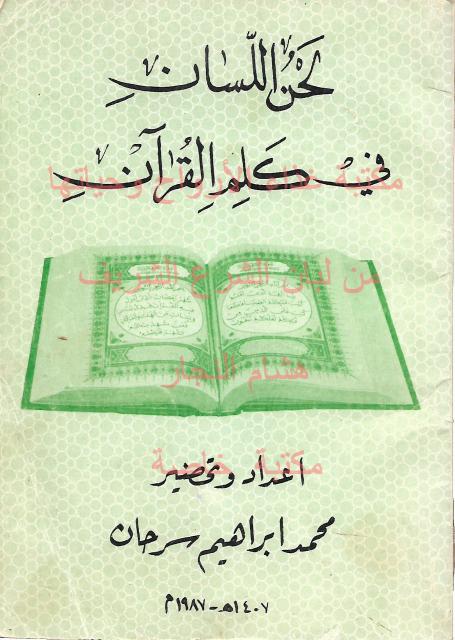 لَحْنُ اللِّسَانِ
فِيْ كَلِمِ الْقُرْآنِ
مكتبة غذاء الأرواح وحياتها
من لبان الشرع الشريف
هشام النجار
مكتبة خاصة
اعداد وتحضير
محمد ابراهيم سرحان
١٤٠٧هـ - ١٩٨٧م